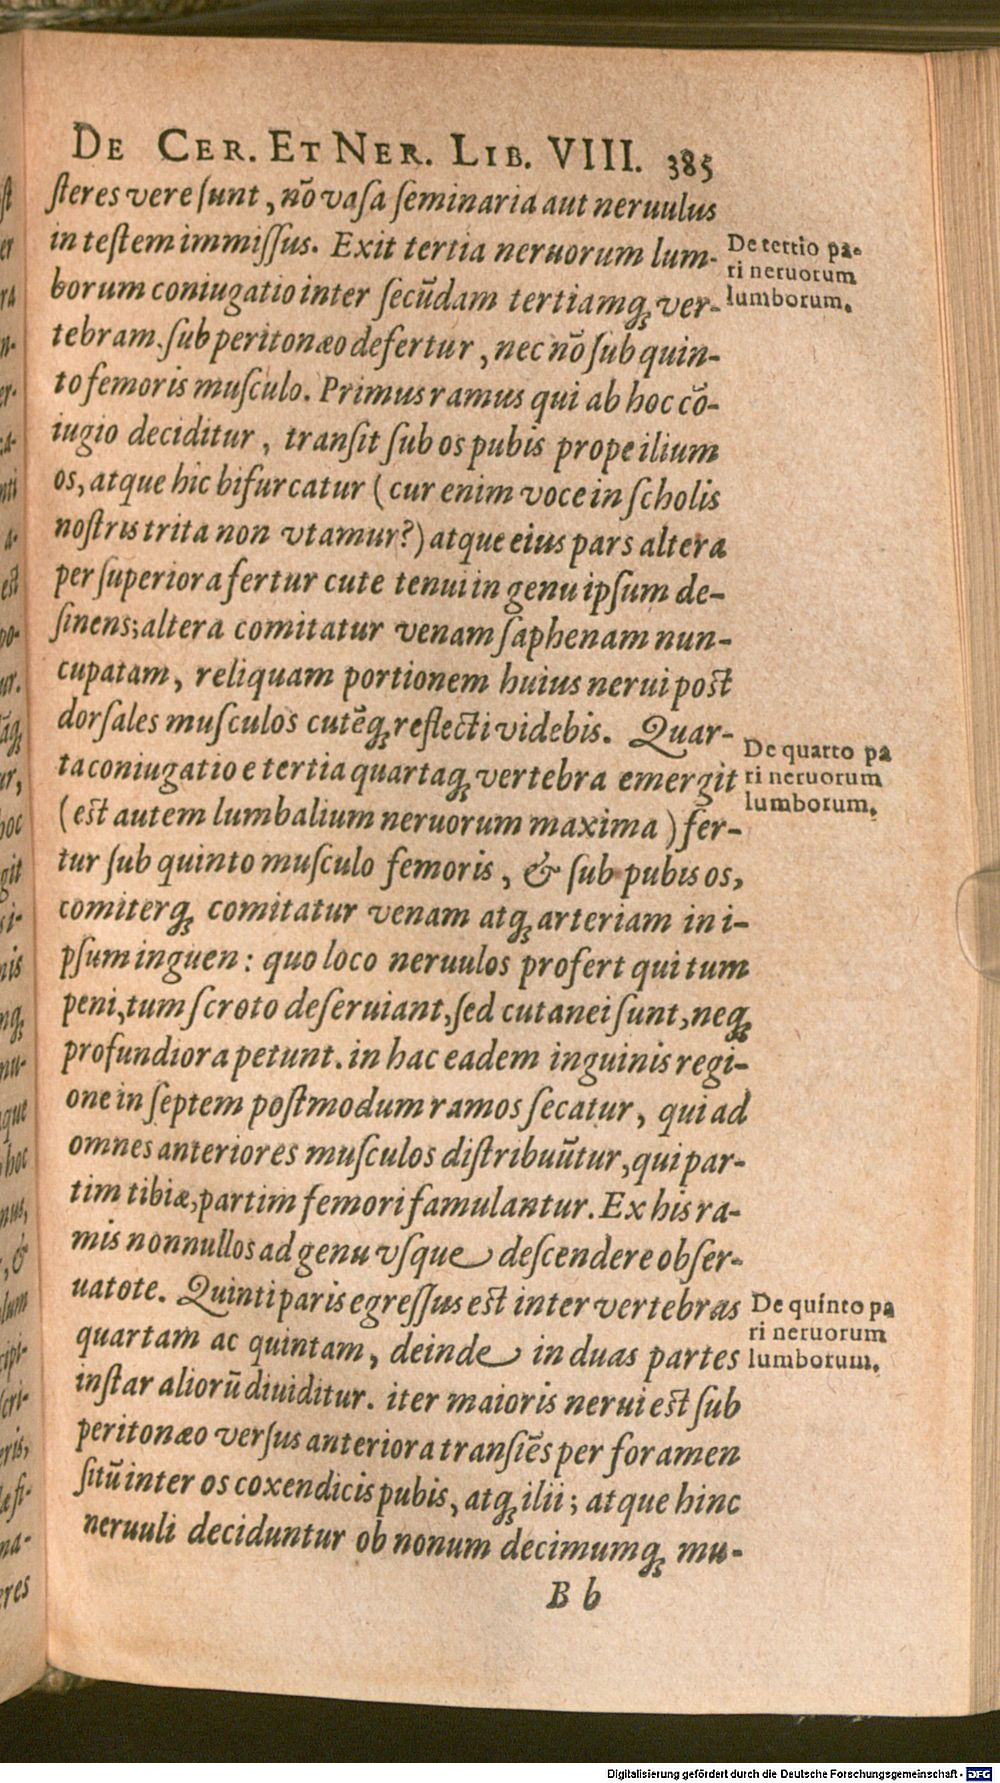 DE CER. ET NER. LIB. VIII. 385
ſteres vere ſunt, nō vaſa ſeminaria aut neruulus
in teſtem immiſſus. Exit tertia neruorum lum-
borum coniugatio inter ſecūdam tertiamq́; ver-
tebram. ſub peritonæo defertur, nec nō ſub quin-
to femoris muſculo. Primus ramus qui ab hoc cō-
iugio deciditur, tranſit ſub os pubis prope ilium
os, atque hic bifurcatur (cur enim voce in ſcholis
noſtris trita non vtamur?) atque eius pars altera
per ſuperiora fertur cute tenui in genu ipſum de-
ſinens; altera comitatur venam ſaphenam nun-
cupatam, reliquam portionem huius nerui poſt
dorſales muſculos cutēq; reflecti videbis. Quar-
ta coniugatio e tertia quartaq; vertebra emergit
(eſt autem lumbalium neruorum maxima) fer-
tur ſub quinto muſculo femoris, & ſub pubis os,
comiterq; comitatur venam atq; arteriam in i-
pſum inguen: quo loco neruulos profert qui tum
peni, tum ſcroto deſeruiant, ſed cutanei ſunt, neq;
profundiora petunt. in hac eadem inguinis regi-
one in ſeptem poſtmodum ramos ſecatur, qui ad
omnes anteriores muſculos diſtribuūtur, qui par-
tim tibiæ, partim femori famulantur. Ex his ra-
mis nonnullos ad genu vſque deſcendere obſer-
uatote. Quinti paris egreſſus eſt inter vertebras
quartam ac quintam, deinde in duas partes
inſtar aliorū diuiditur. iter maioris nerui eſt ſub
peritonæo verſus anteriora tranſiēs per foramen
ſitū inter os coxendicis pubis, atq; ilii; atque hinc
neruuli deciduntur ob nonum decimumq; mu-
B b
De tertio pa-
ri neruorum
lumborum.
De quarto pa
ri neruorum
lumborum.
De quinto pa
ri neruorum
lumborum.
Digitalisierung gefördert durch die Deutsche Forschungsgemeinschaft - DFG